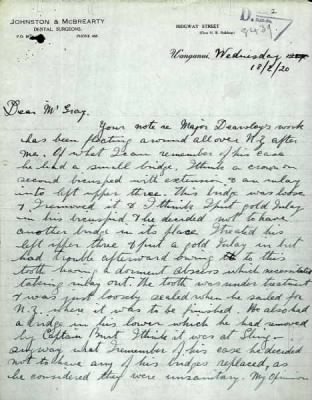 JOHNSTON & McBREARTY
DENTAL SURGEONS.
PHONE
RIDGWAY STREET
Wanganui, Wednesday
18/2/20
Dear Mr Gray.
Your note re Major Dearsley's work
has been floating around all over N.Z after
me. Of what I can remember of his case
he had a small bridge, I think a crown on
second bicuspid with extension & an inlay
into left upper three. This bridge was loose
& I removed it & I think I put gold Inlay
in his bicuspid & he decided not to have
another bridge in its place. I treated his
left upper three & put a gold Inlay in but
had trouble afterward owing to this
tooth having a dormant abscess which necessitated
taking inlay out. The tooth was under treatment
& was just loosely sealed when he sailed for
N.Z. where it was to be finished. He also had
a bridge in his lower which he had removed
by Captain I think it was at Sling -
anyway what I remember of his case he decided
not to have any of his bridges replaced, as
he considered they were unsanitary. My Opinion